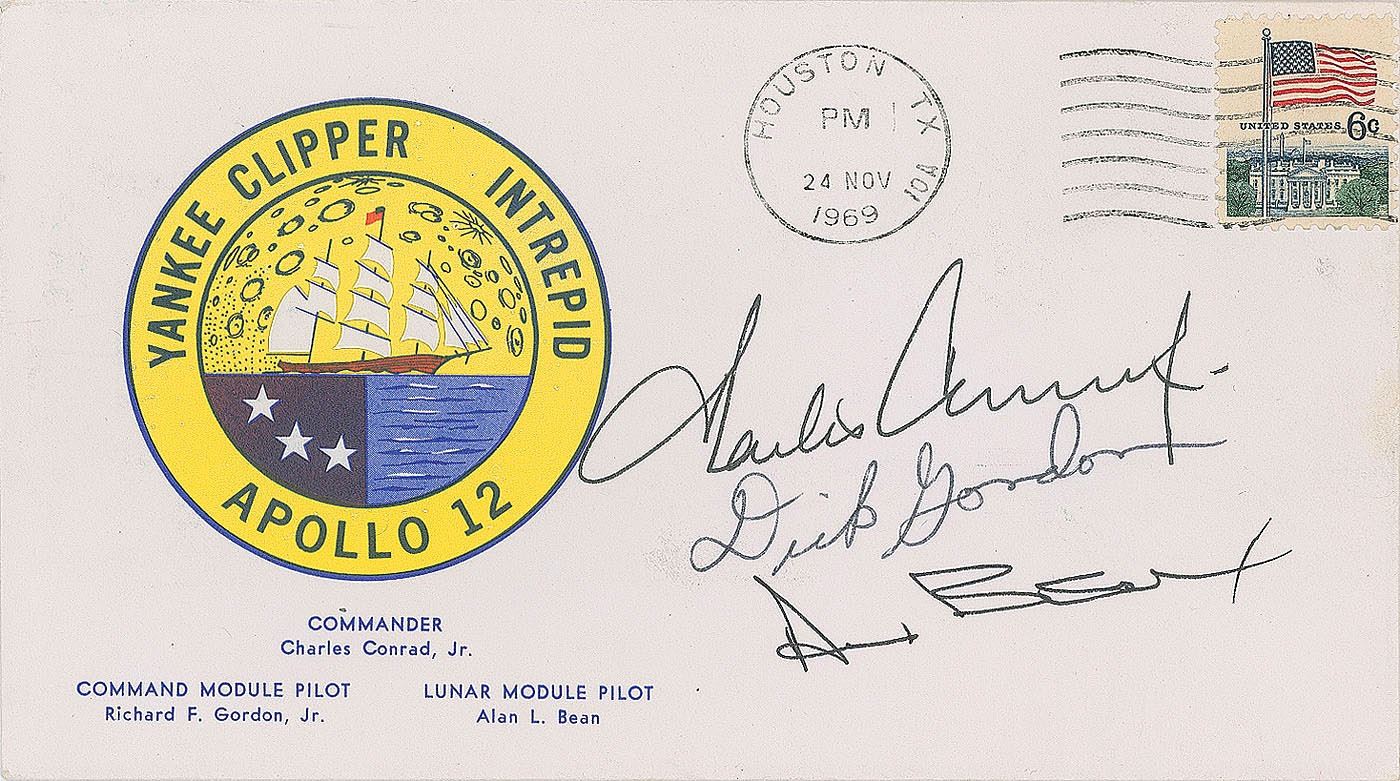 YANKEE CLIPPER INTREPID
APOLLO 12
HOUSTON TX
PM
24 NOV
1969
UNITED STATES 6c
Charles Conrad Jr.
Dick Gordon
Alan Bean
COMMANDER
Charles Conrad, Jr.
COMMAND MODULE PILOT
Richard F. Gordon, Jr.
LUNAR MODULE PILOT
Alan L. Bean